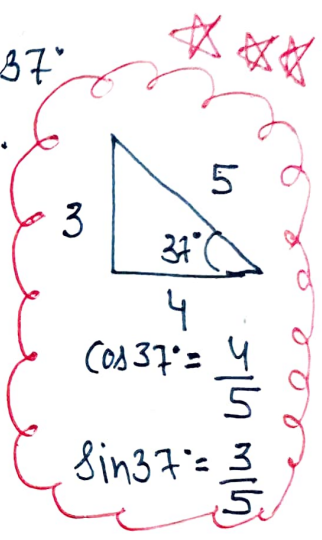 37°
5
3
37°
4
Cos37°= 4/5
Sin37°= 3/5